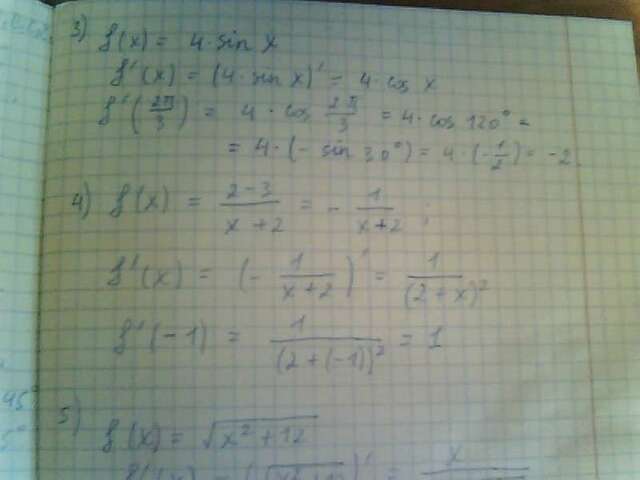 3) f(x) = 4·sin x
f'(x) = (4·sin x)' = 4·cos x
f'(2π/3) = 4·cos 2π/3 = 4·cos 120° =
= 4·(- sin 30°) = 4·(-1/2) = -2
4) f(x) = 2-3/x+2 = - 1/x+2 ;
f'(x) = (- 1/x+2)' = 1/(2+x)²
f'(-1) = 1/(2+(-1))² = 1
5) f(x) = √x²+12
45°
5°